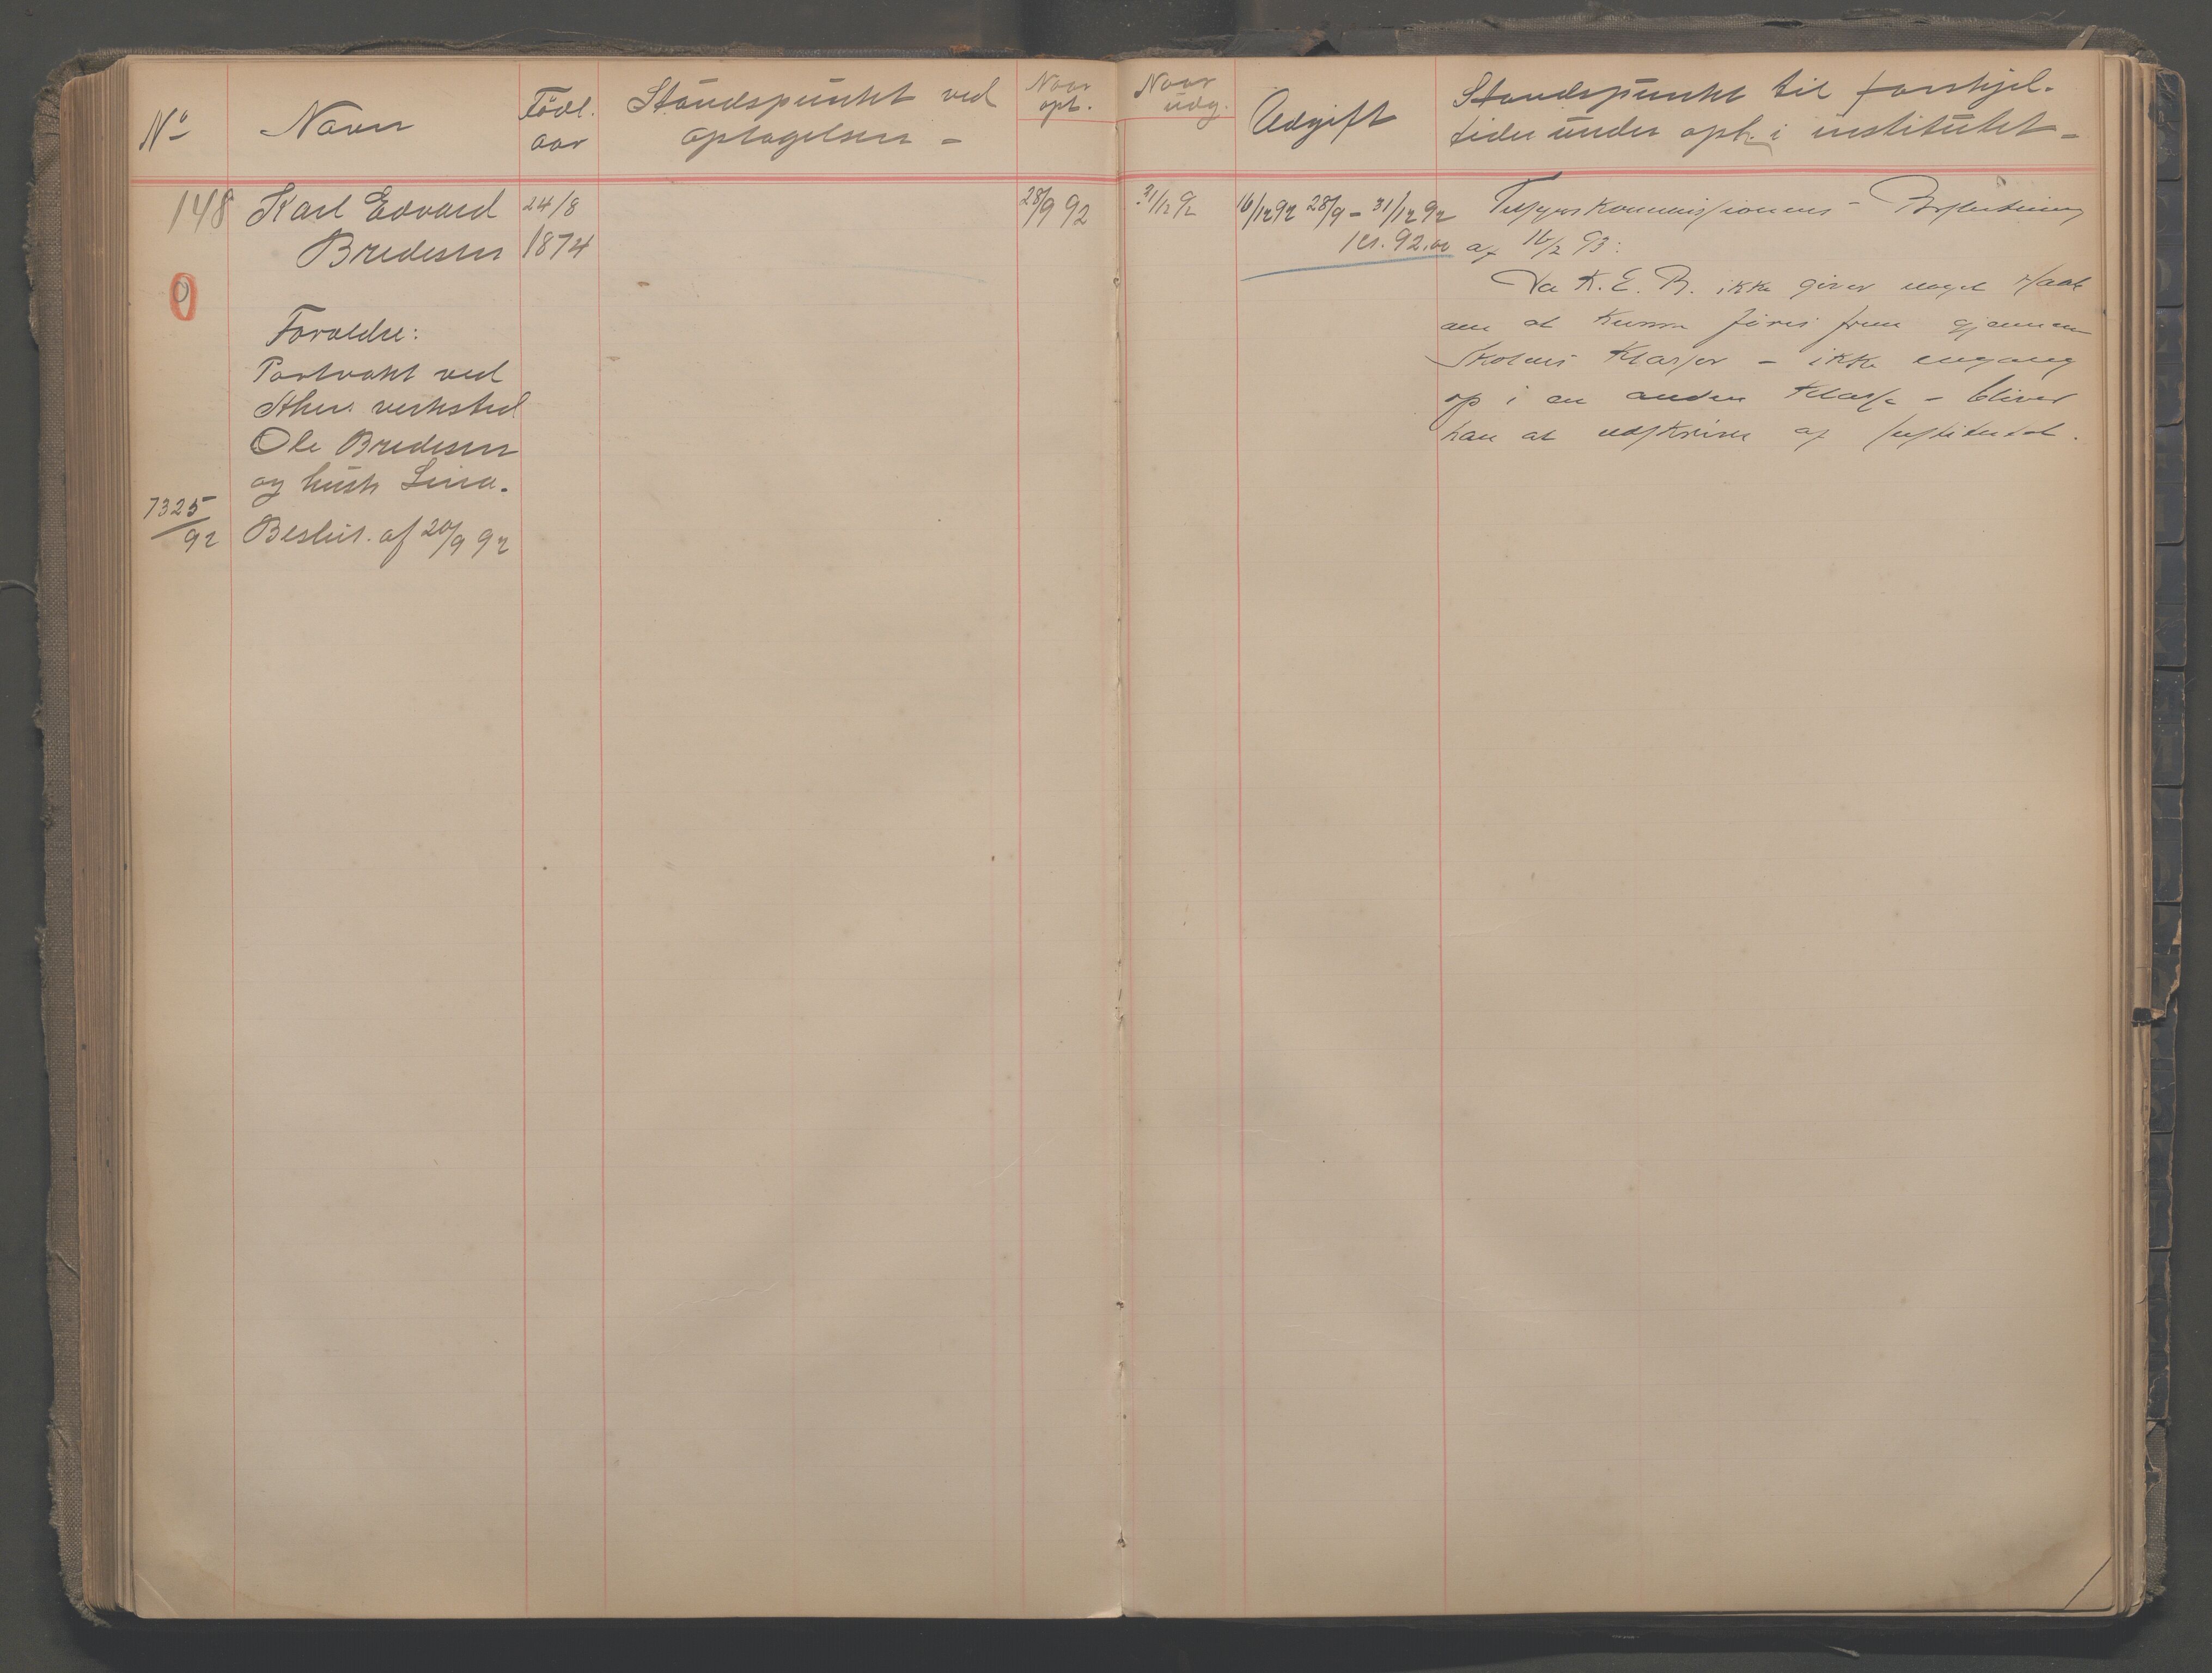 No
Navn
Födt.
aar
Standspunkt ved
optagelsen -
Naar
opt.
Naar
udg.
Udgift
Standspunkt til forskjel.
tider under oph. i institutet -
148
Karl Edvard
Bredesen
24/8
1874
28/9 92
31/12 92
16/12 92 28/9 - 31/12 92
kr. 92.00
0
Forældre:
Portvakt ved
Akers verksted
Ole Bredesen
og hustr Lina.
7325/92
Beslut. af 20/9 92
Tilsynskommissionens Beslutning
af 16/2 93:
Da K. E. B. ikke giver noget Haab
om at kunne föres frem gjennem
Skolens Klasser - ikke engang
op i en anden Klasse - bliver
han at udskrive af Institutet.